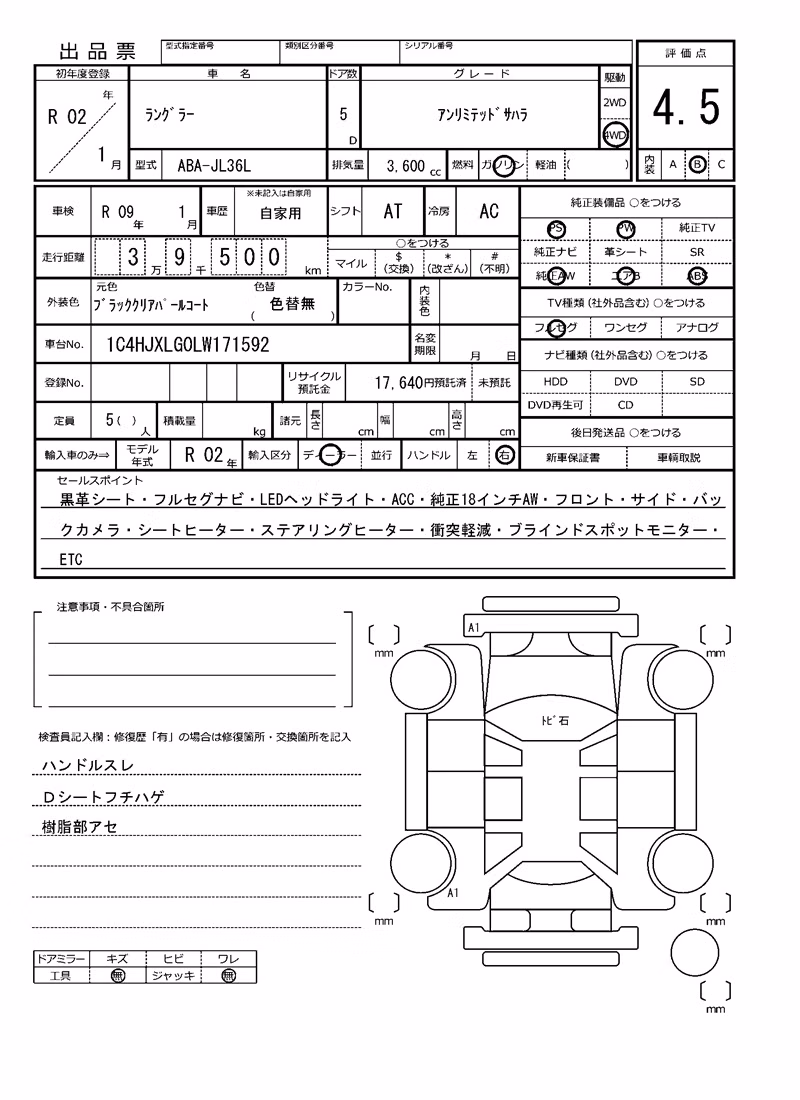 出品票
型式指定番号 類別区分番号 シリアル番号
評価点
4.5
内装 A B C
初年度登録 車名 ドア数 グレード 駆動
R 02 年 1 月 ラングラー 5 D アンリミテッドサハラ 2WD 4WD
型式 ABA-JL36L 排気量 3,600 cc 燃料 ガソリン 軽油 ( )
車検 R 09 年 1 月 車歴 ※未記入は自家用 自家用 シフト AT 冷房 AC
走行距離 3 万 9 千 5 0 0 km ○をつける マイル $ (交換) * (改ざん) # (不明)
外装色 元色 ブラッククリアパールコート 色替 ( 色替無 ) カラーNo. 内装色
車台No. 1C4HJXLG0LW171592 名変期限 月 日
登録No. リサイクル預託金 17,640円預託済 未預託
定員 5( ) 人 積載量 kg 諸元 長さ cm 幅 cm 高さ cm
輸入車のみ⇒ モデル年式 R 02 年 輸入区分 ディーラー 並行 ハンドル 左 右
純正装備品 ○をつける
PS PW 純正TV
純正ナビ 革シート SR
純正AW エアB ABS
TV種類(社外品含む)○をつける
フルセグ ワンセグ アナログ
ナビ種類(社外品含む)○をつける
HDD DVD SD
DVD再生可 CD
後日発送品 ○をつける
新車保証書 車輌取説
セールスポイント
黒革シート・フルセグナビ・LEDヘッドライト・ACC・純正18インチAW・フロント・サイド・バッ
クカメラ・シートヒーター・ステアリングヒーター・衝突軽減・ブラインドスポットモニター・
ETC
注意事項・不具合箇所
検査員記入欄：修復歴「有」の場合は修復箇所・交換箇所を記入
ハンドルスレ
Dシートフチハゲ
樹脂部アセ
ドアミラー キズ ヒビ ワレ
工具 無 ジャッキ 無
A1
mm
mm
トビ石
A1
mm
mm
mm